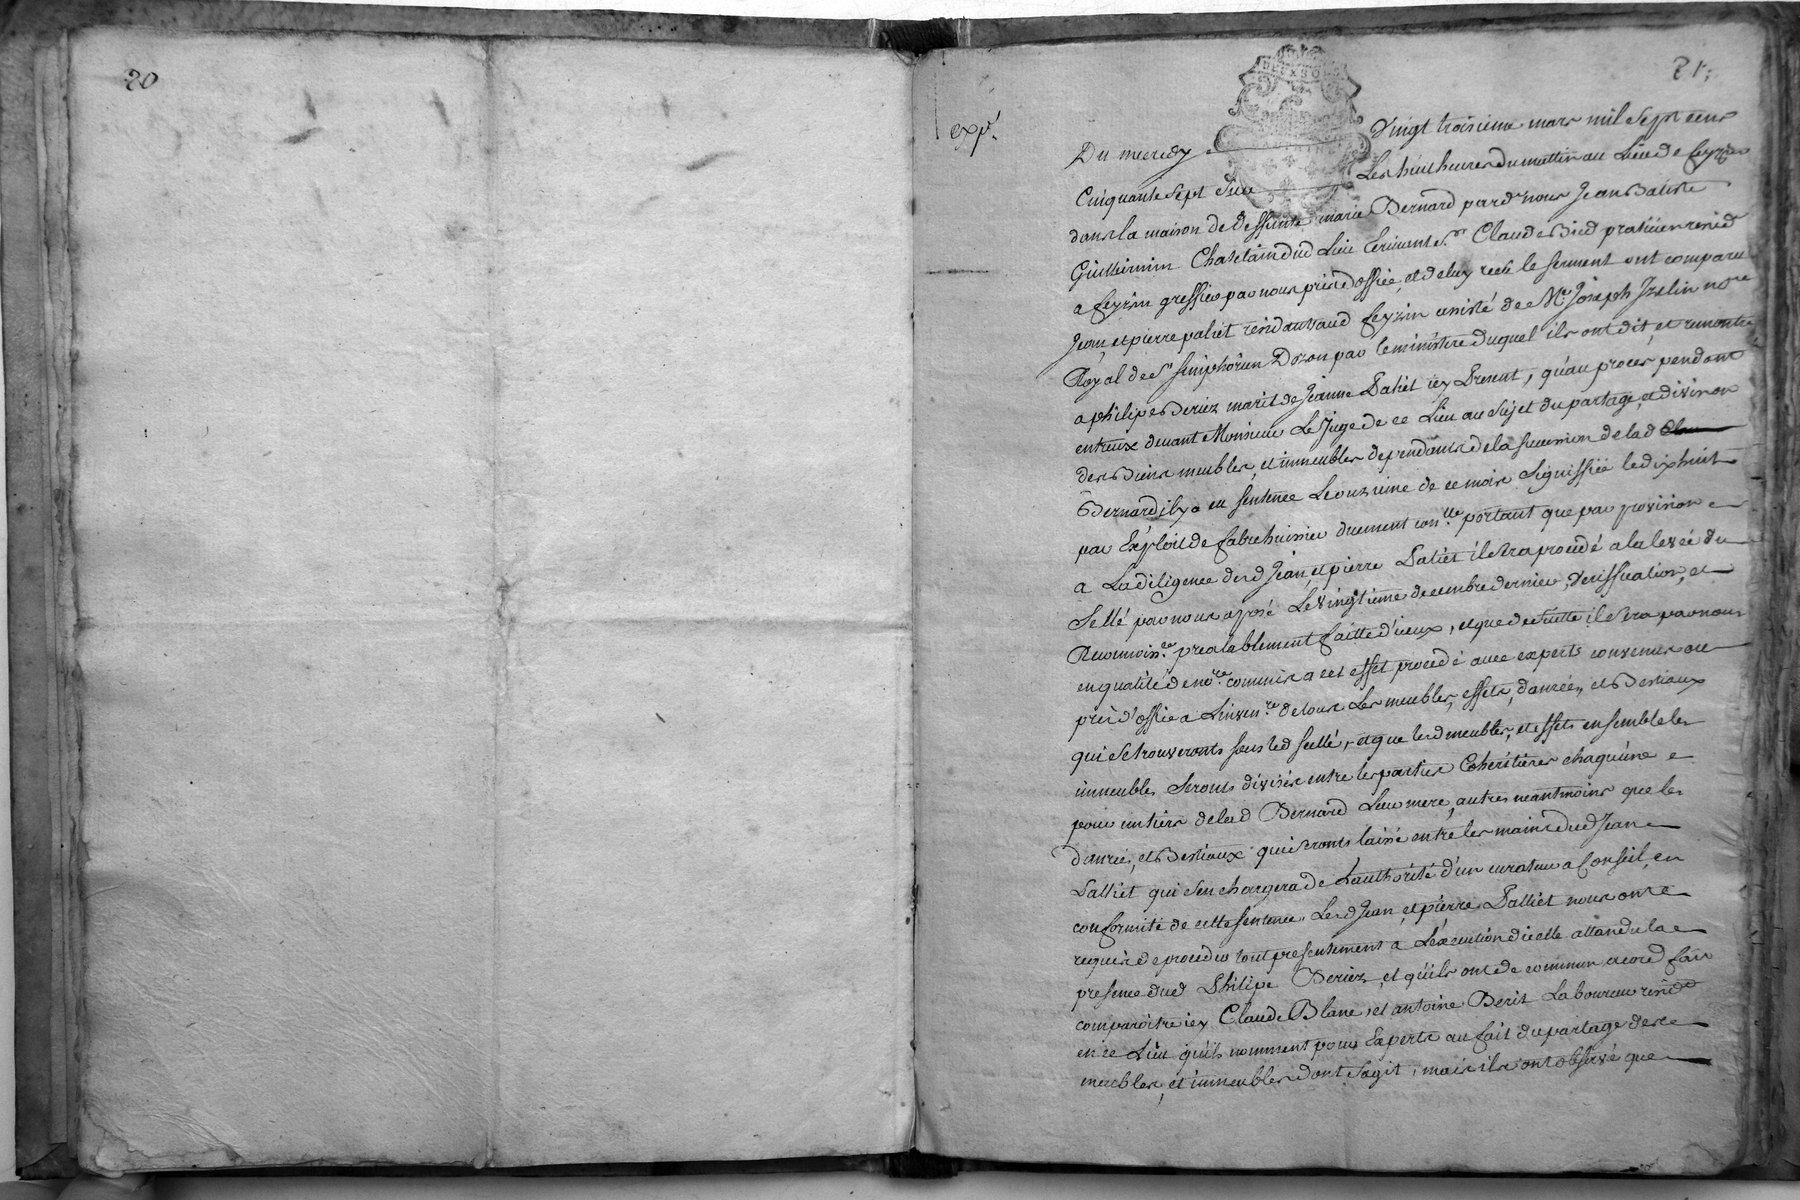 20
21
expé
DEUX SOLS
Du mercredy vingt troisieme mars mil sept cens
Cinquante sept sur Les huit heures du mattin au Lieu de feyzin
dans la maison de deffunte marie Bernard pard.t nous Jean Batiste
Guillermin Chatelain dud Lieu Ecrivant S.r Claude Bied praticien resid.t
a feyzin greffier par nous pris d'office, et de luy recu le serment ont comparu
Jean, et pierre paliet resid aud feyzin assisté de M.e Joseph Jzslin no.re
Royal de S.t simphorien Dozon par le ministere duquel ils ont dit, et remontré
a philipe Beriez marit de Jeanne Paliet icy Present, qu'au proces, pendant
entreux devant Monsieur Le Juge de ce Lieu au sujet du partage, et division
des Biens meubles, et immeubles dependants de la succession de lad
Bernard, il y a eu sentence Le onzieme de ce mois signiffiée le dix huit
par Exploit de fabre huissier duement con.llé portant que par provision
a La diligence desd Jean, et pierre Paliet il sera procedé a la levée du
scellé par nous aposé Le vingtieme decembre dernier, veriffication, et
Reconnoiss.ce prealablement faitte d'iceux, et que de suitte il sera par nous
en qualité de no.re commis a cet effet procedé avec experts convenus ou
pris d'office a L'inven.re de tous Les meubles, effets, danrées, et Bestiaux
qui se trouveront sous led scellé, et que lesd meubles, et effets ensemble les
immeubles seront divisés entre les parties Coheritieres chaqu'une
pour un tiers de lad Bernard Leur mere, autres neantmoins que les
danrées, et Bestiaux qui seront laissé entre les mains dud Jean
Palliet qui s'en chargera de L'authorité d'un curateur a Conseil, en
conformité de cette sentence, Lesd Jean, et pierre Palliet nous ont
requis de proceder tout presentement a L'execution d'icelle attandu la
presence dud Philipe Beriez, et qu'ils ont de commun acord fait
comparoitre icy Claude Blanc, et antoine Berit Laboureurs resid.t
en ce Lieu qu'ils nomment pour Experts au fait du partage desd
meubles, et immeubles dont s'agit, mais ils ont observé que